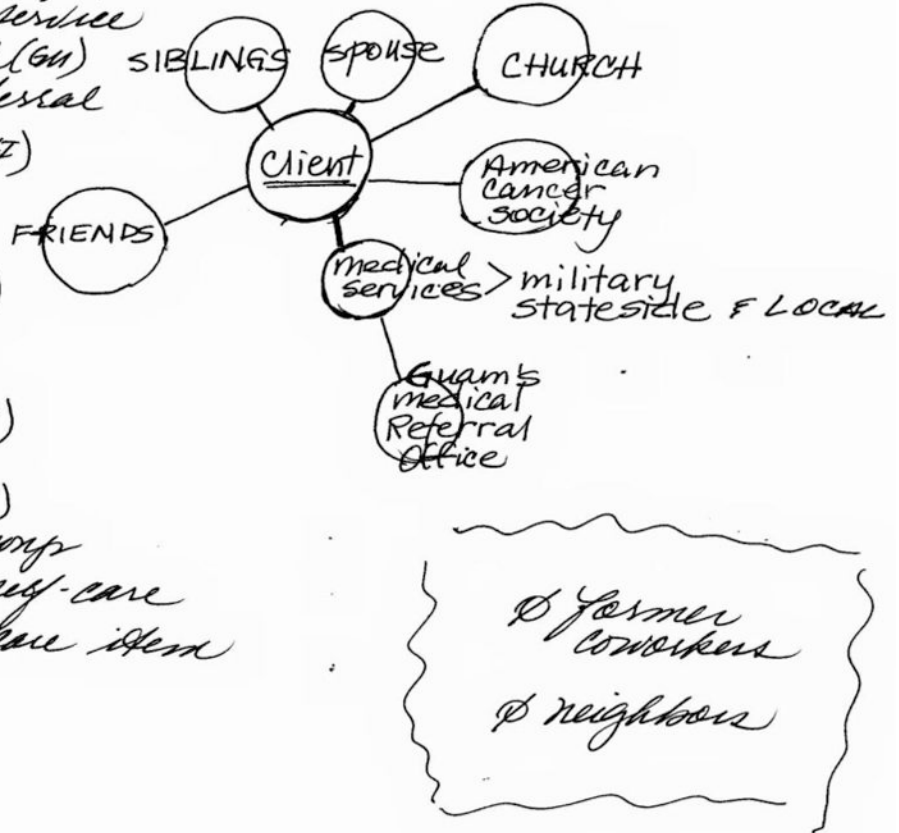 service
(GU)
SIBLINGS
spouse
CHURCH
Client
American
cancer
society
FRIENDS
medical
services > military
stateside & LOCAL
Guam's
medical
Referral
Office
self-care
care item
Ø former
coworkers
Ø neighbors